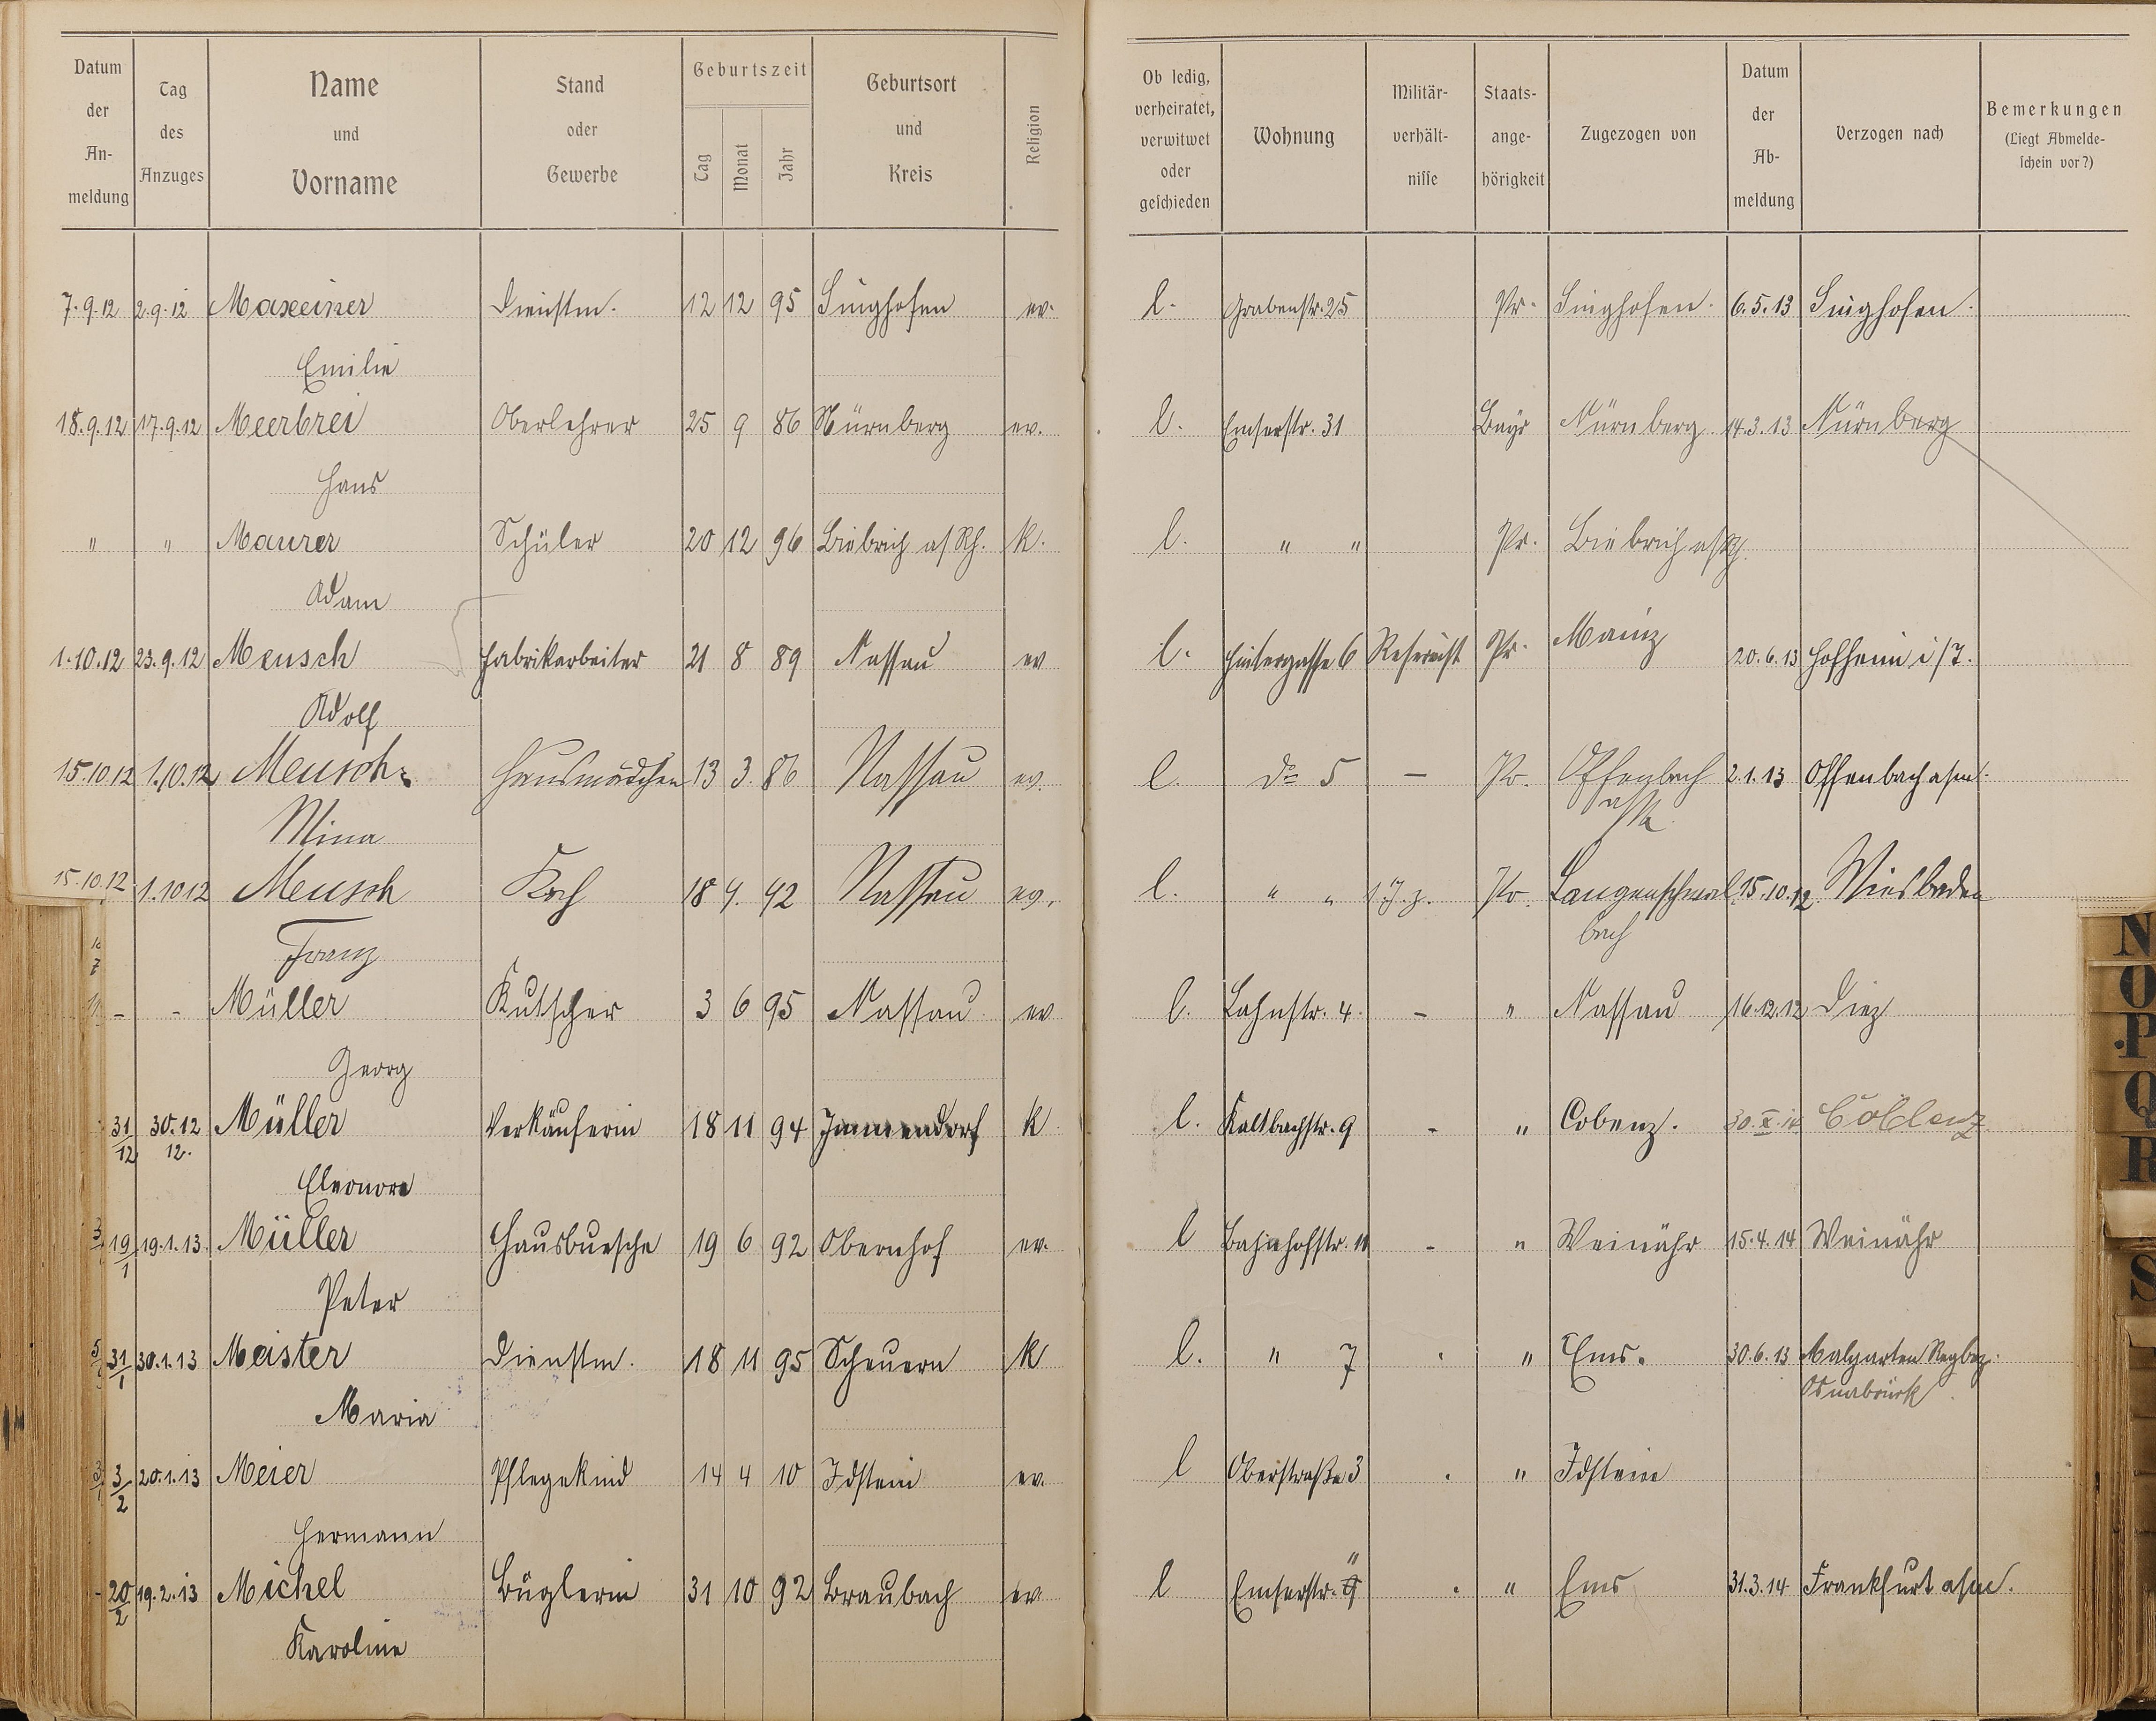 Datum der An-meldung | Tag des Anzuges | Name und Vorname | Stand oder Gewerbe | Geburtszeit Tag Monat Jahr | Geburtsort und Kreis | Religion | Ob ledig, verheiratet, verwitwet oder geschieden | Wohnung | Militär-verhält-nisse | Staats-ange-hörigkeit | Zugezogen von | Datum der Ab-meldung | Verzogen nach | Bemerkungen (Liegt Abmelde-schein vor?)
7.9.12 2.9.12 Maxeiner Dienstm. 12 12 95 Singhofen ev. l. Grabenstr. 25 Pr. Singhofen. 6.5.13 Singhofen.
Emilie
18.9.12 17.9.12 Meerbrei Oberlehrer 25 9 86 Nürnberg ev. l. Emserstr. 31 Bayr Nürnberg 14.3.13 Nürnberg
Hans
" " Maurer Schüler 20 12 96 Biebrich a/Rh. k. l. " " Pr. Biebrich a/Rh.
Adam
1.10.12 23.9.12 Meusch Fabrikarbeiter 21 8 89 Nassau ev l. Hintergasse 6 Reservist Pr. Mainz 20.6.13 Hofheim i/T.
Adolf
15.10.12 1.10.12 Meusch Hausmädchen 13 3. 86 Nassau ev. l. do 5 – Pr. Offenbach 2.1.13 Offenbach a/m.
Mina a/M
15.10.12 1.10 12 Meusch Koch 18 4. 92 Nassau ev. l. " " Pr. Langenschwal 15.10.12 Wiesbaden
Franz bach
– - Müller Kutscher 3 6 95 Nassau ev l. Lahnstr. 4. – " Nassau 16.12.12 Diez
Georg
31/12 30.12 Müller Verkäuferin 18 11 94 Immendorf k l. Kaltbachstr. 9 - " Cobenz. 30.X.14 Coblenz
12.
Eleonore
19/1 19.1.13. Müller Hausbursche 19 6 92 Obernhof ev. l Bahnhofstr. 11 - " Weinähr 15.4.14 Weinähr
Peter
31/1 30.1.13 Meister Dienstm. 18 11 95 Scheuern k l. " 7 " Ems. 30.6.13 Malgarten Regbez.
Osnabrück
Maria
3/2 20.1.13 Meier Pflegekind 14 4 10 Idstein ev. l Oberstraße 3 . " Idstein
Hermann
20/2 19.2.13 Michel Büglerin 31 10 92 Braubach ev l Emserstr. . " Ems 31.3.14 Frankfurt a/m.
Karoline
N
O
P
Q
R
S